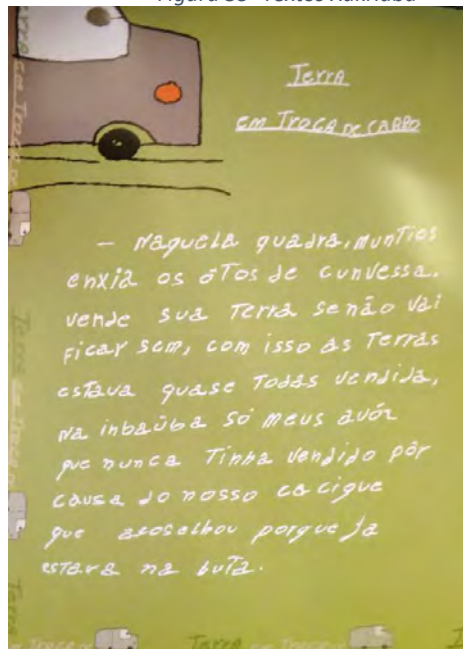 Textos Xakriabá
Terra
em Troca de CARRO
— Naquela quadra, muntios
enxia os ôtos de cunvessa.
vende sua Terra senão vai
ficar sem, com isso as Terras
estava quase Todas vendida,
Na inbaúba só meus avór
que nunca Tinha vendido pôr
causa do nosso cacique
que acoselhou porque ja
estava na luta.
Terra em Troca de